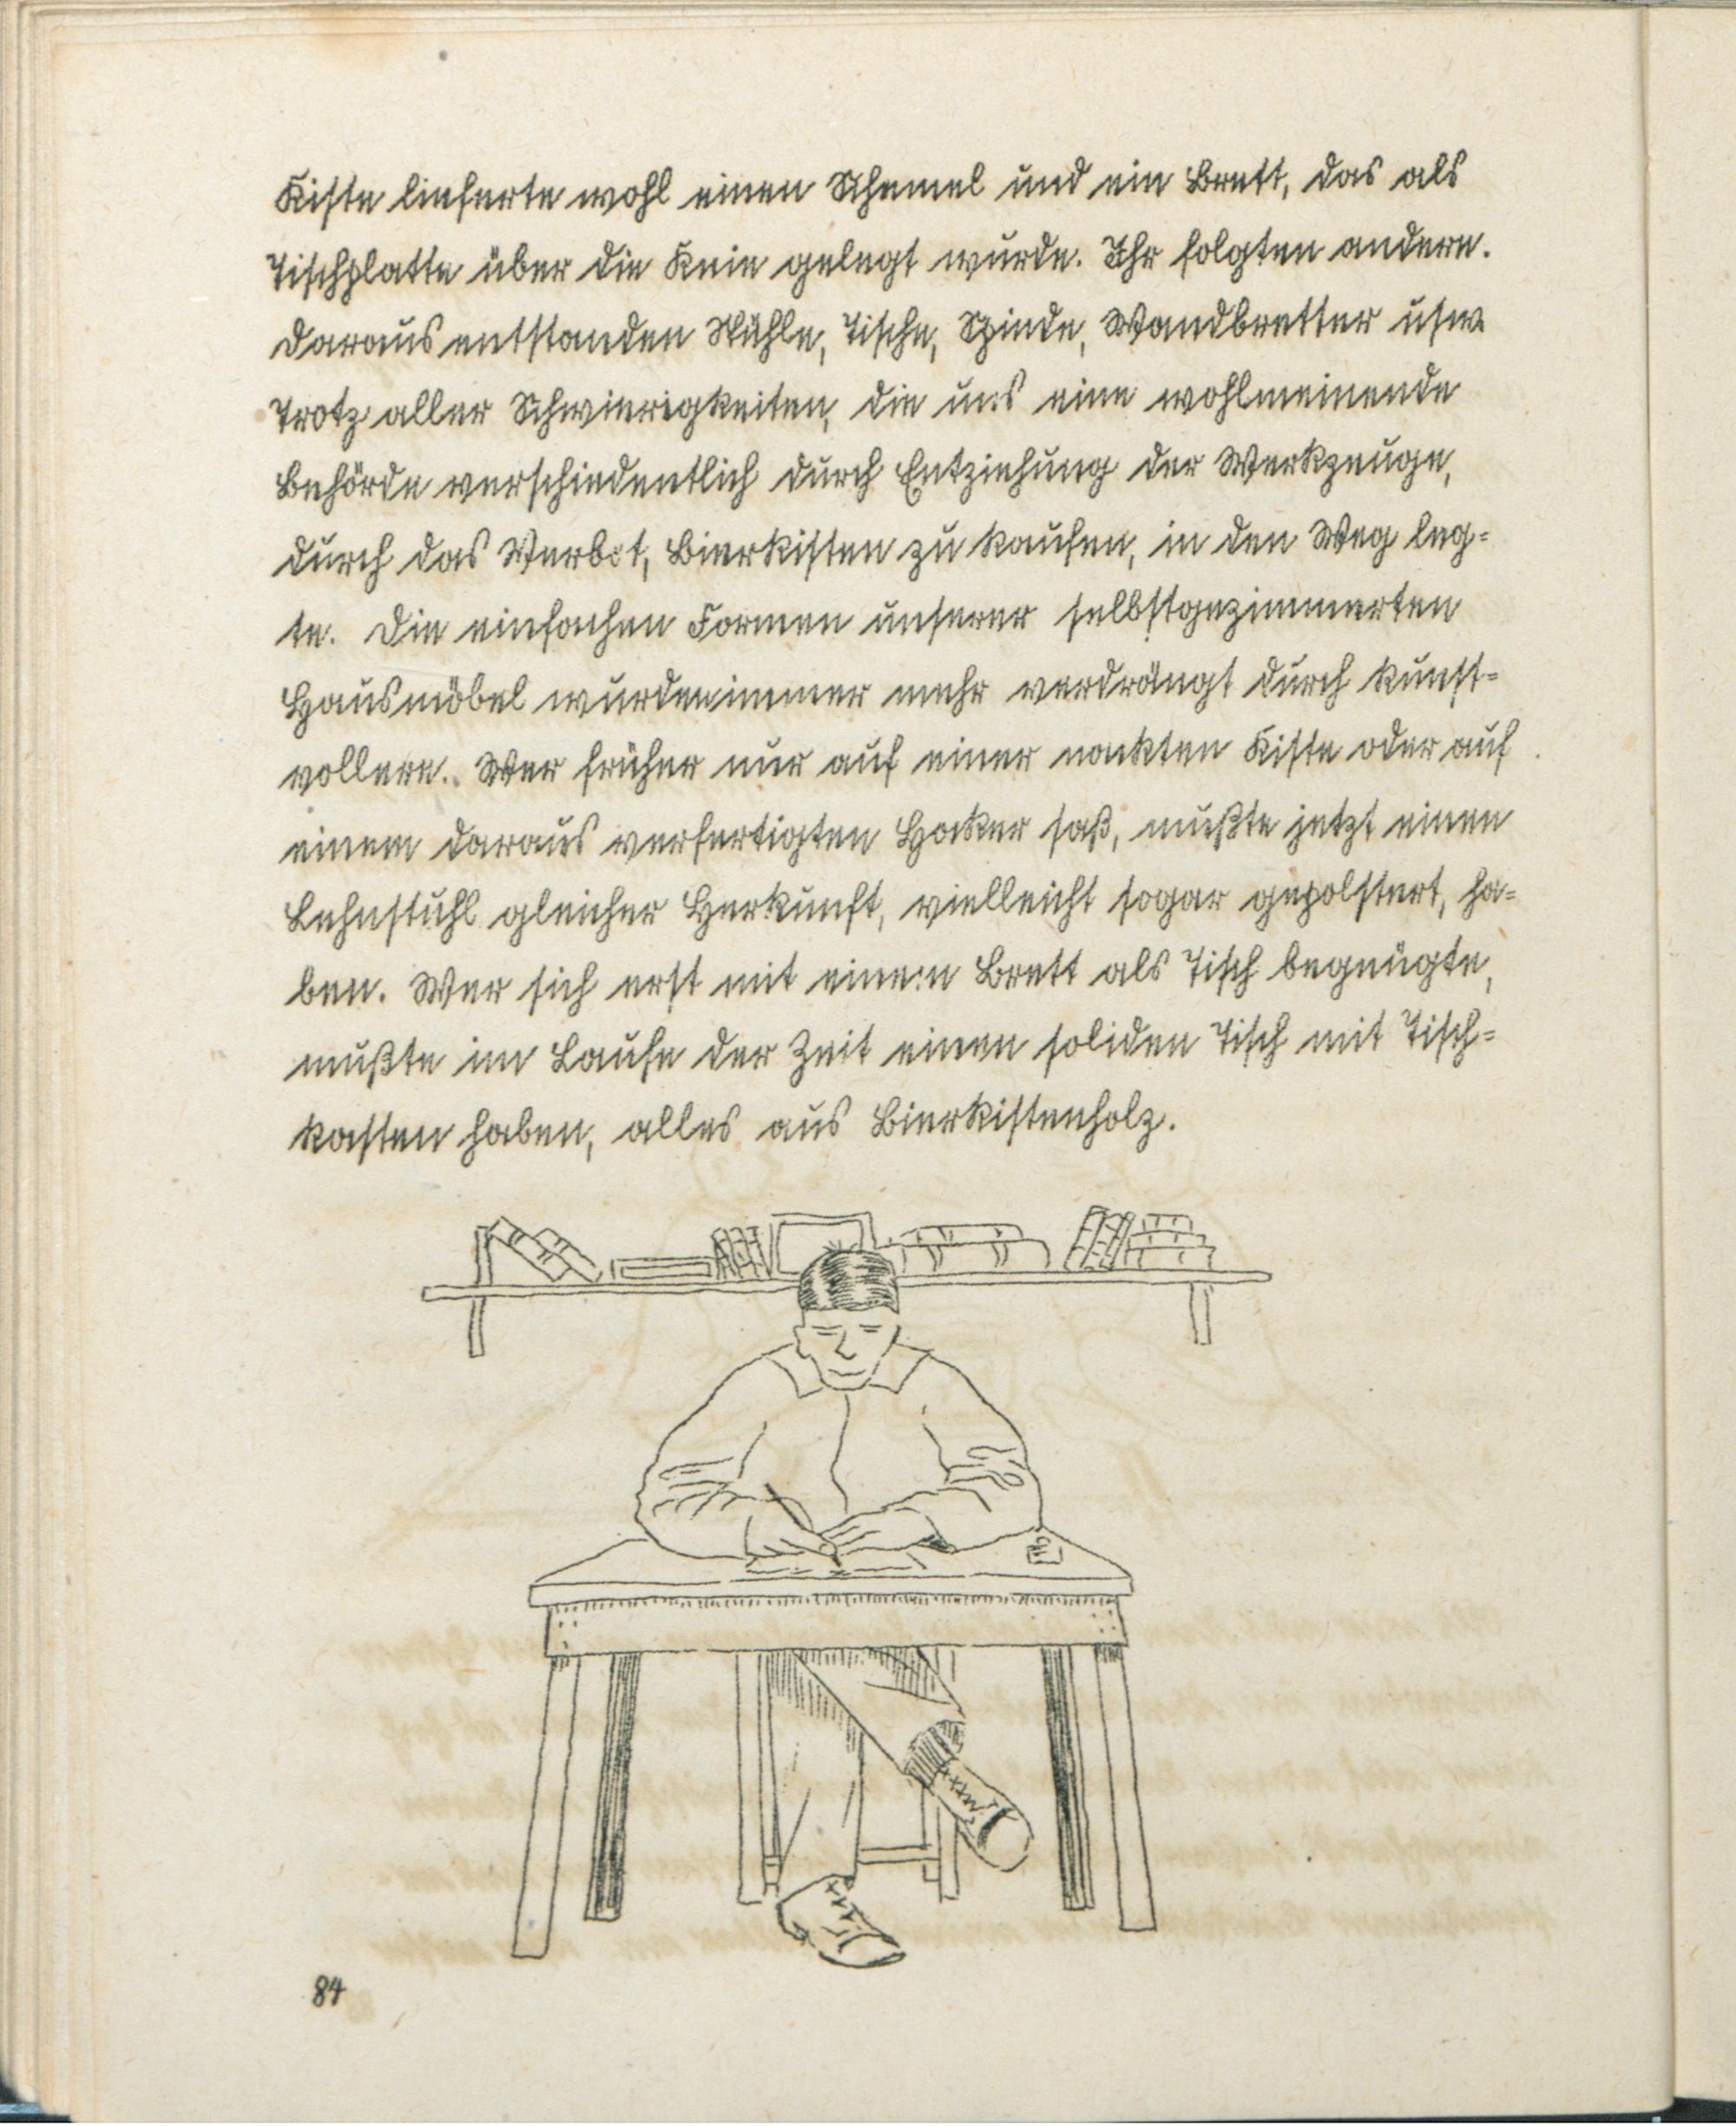 Kiste lieferte wohl einen Schemel und ein Brett, das als
Tischplatte über die Knie gelegt wurde. Ihr folgten andere.
Daraus entstanden Stühle, Tische, Spinde, Wandbretter usw.
Trotz aller Schwierigkeiten, die uns eine wohlmeinende
Behörde verschiedentlich durch Entziehung der Werkzeuge,
durch das Verbot, Bierkisten zu kaufen, in den Weg leg=
te. Die einfachen Formen unserer selbstgezimmerten
Hausmöbel wurden immer mehr verdrängt durch kunst=
vollere. Wer früher nur auf einer nackten Kiste oder auf
einem daraus verfertigten Hocker saß, mußte jetzt einen
Lehnstuhl gleicher Herkunft, vielleicht sogar gepolstert, ha=
ben. Wer sich erst mit einem Brett als Tisch begnügte,
mußte im Laufe der Zeit einen soliden Tisch mit Tisch=
kasten haben, alles aus Bierkistenholz.
84